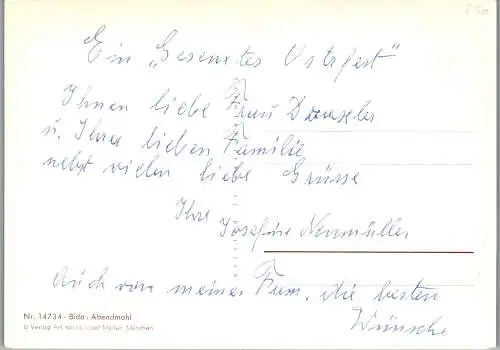 Ein „Gesegnetes Ostrfest"
Ihnen liebe Frau
u. Ihrer lieben Familie
nebst vielen liebe Grüsse
Ihre
Josefine Neumüller
Auch von meiner Fam. die besten
Wünsche
Nr. 14734 - Bida: Abendmahl
© Verlag Ars sacra Josef Müller, München